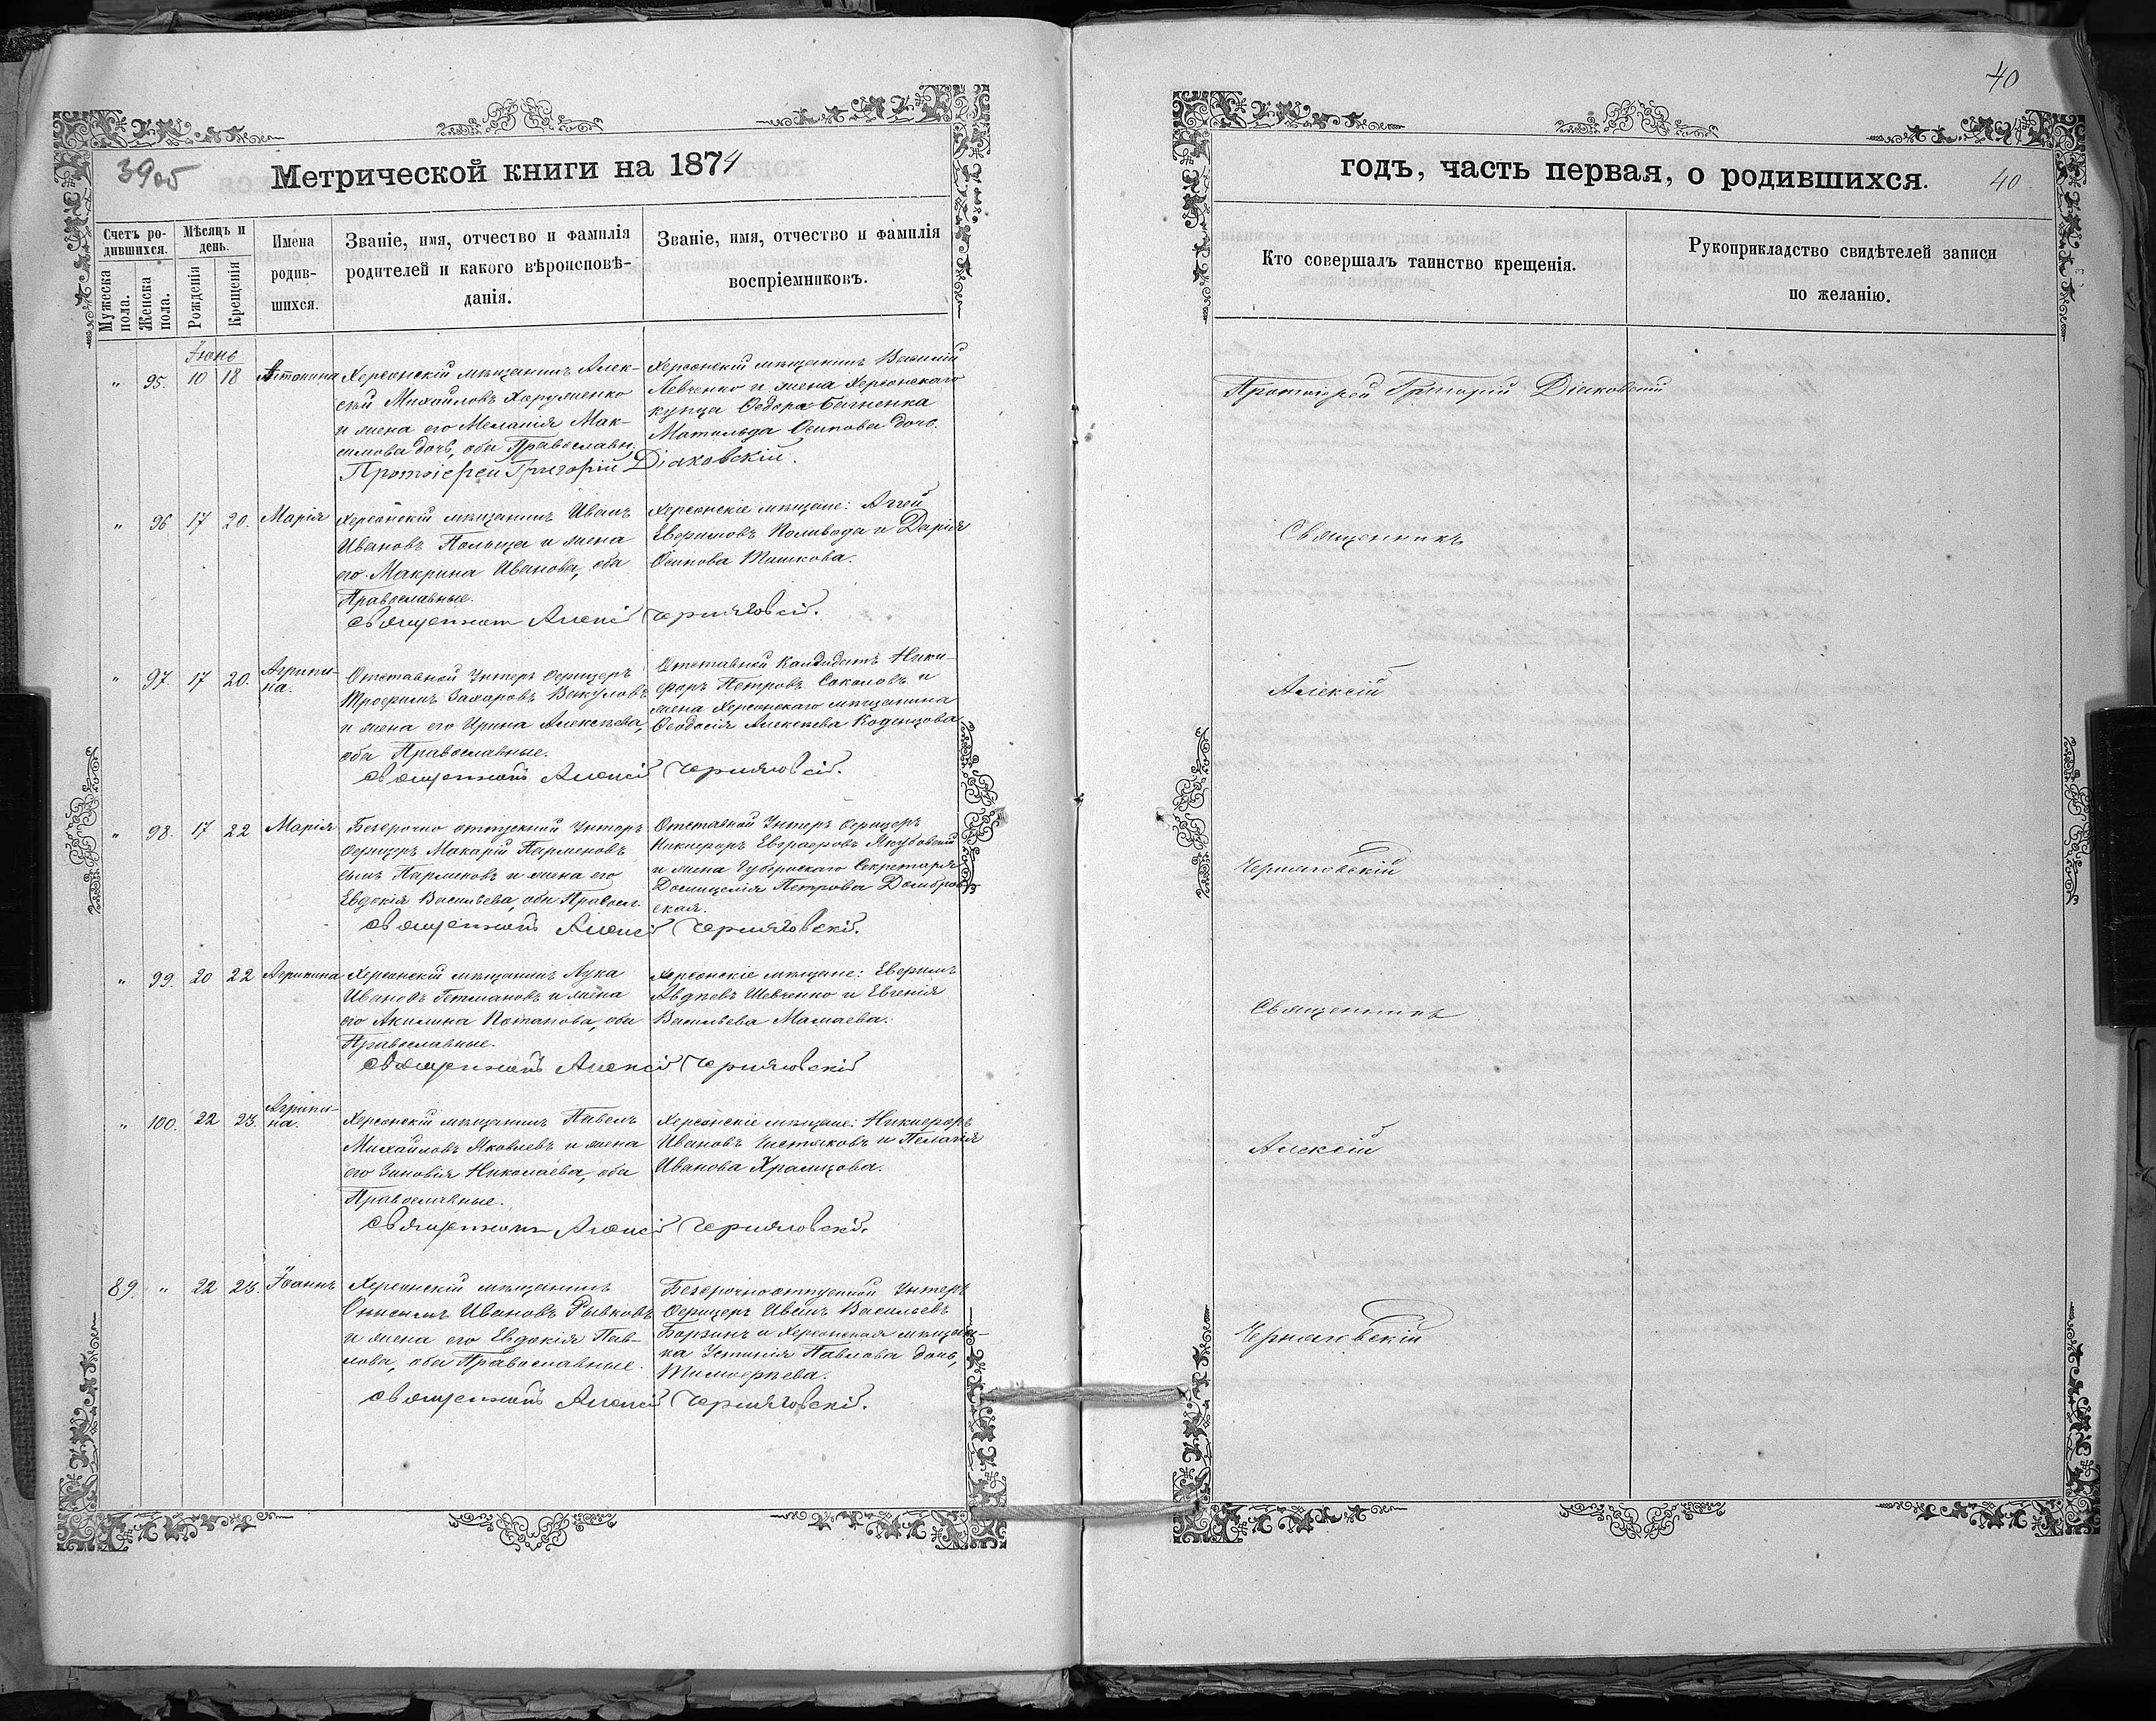 39об
Метрической книги на 1874
Счетъ ро-
дившихся.
Мужеска
пола.
Женска
пола.
Мѣсяцъ и
день.
Рожденія
Крещенія
Имена
родив-
шихся.
Званіе, имя, отчество и фамилія
родителей и какого вѣроисповѣ-
данія.
Званіе, имя, отчество и фамилія
воспріемниковъ.
Іюнь
" 95. 10 18 Антонина
Херсонскій мѣщанинъ Алек-
сѣй Михайловъ
и жена его Меланія Мак-
симова дочь, оба Православн.
Херсонскій мѣщанинъ Василій
Левченко и жена Херсонскаго
купца Ѳедора
Матильда Осипова дочь.
Протоіерей Григорій Діаковскій.
" 96 17 20. Марія
Херсонскій мѣщанинъ Иванъ
Ивановъ Польща и жена
его Макрина Иванова, оба
Православные.
Херсонскіе мѣщане: Аггей
Евфимовъ Поливода и Дарія
Осипова Тишкова.
Священникъ Алексій Черняховскій.
" 97. 17 20. Агрипи-
на.
Отставной Унтеръ Офицеръ
Трофимъ Захаровъ Викуловъ
и жена его Ирина Алексѣева,
оба Православные.
Отставной Кандидатъ Ники-
форъ Петровъ Соколовъ и
жена Херсонскаго мѣщанина
Ѳеодосія Алексѣева Кодинцова
Священникъ Алексій Черняховскій.
" 98. 17 22 Марія
Безсрочно отпускной Унтеръ
Офицеръ Макарій Парменовъ
сынъ Парменовъ и жена его
Евдокія Васильева, оба Правосл.
Отставной Унтеръ Офицеръ
Никифоръ Евграфовъ Якубовскій
и жена Губернскаго Секретаря
Домицелія Петрова Домбров-
ская.
Священникъ Алексій Черняховскій.
" 99. 20 22 Агрипина
Херсонскій мѣщанинъ Лука
Ивановъ Гетмановъ и жена
его Акилина Потапова, оба
Православные.
Херсонскіе мѣщане: Евфимъ
Авдѣевъ Шевченко и Евгенія
Васильева Мамаева.
Священникъ Алексій Черняховскій
" 100. 22 23. Агрипи-
на.
Херсонскій мѣщанинъ Павелъ
Михайловъ Яковлевъ и жена
его Зиновія Николаева, оба
Православные.
Херсонскіе мѣщане: Никифоръ
Ивановъ Чистяковъ и Пелагія
Иванова Храмцова.
Священникъ Алексій Черняховскій.
89. " 22 23. Іоаннъ
Херсонскій мѣщанинъ
Онисимъ Ивановъ Рывковъ
и жена его Евдокія Пав-
лова, оба Православные.
Безсрочноотпускной Унтеръ
Офицеръ Иванъ Васильевъ
Борзинъ и Херсонская мѣщан-
ка Устинія Павлова дочь,
Тимофѣева.
Священникъ Алексій Черняховскій.
40
годъ, часть первая, о родившихся.
40.
Кто совершалъ таинство крещенія.
Рукоприкладство свидѣтелей записи
по желанію.
Протоіерей Григорій Діаковскій
Священникъ
Алексій
Черняховскій
Священникъ
Алексій
Черняховскій